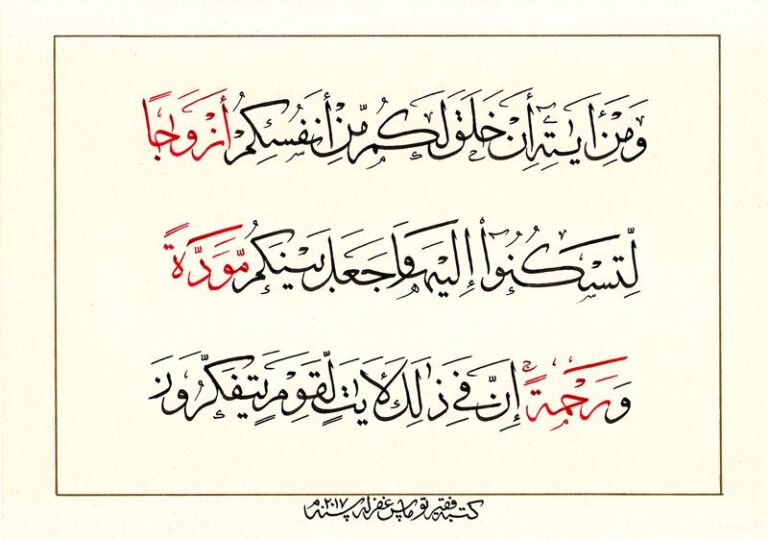 وَمِنْ ءَايَٰتِهِۦٓ أَنْ خَلَقَ لَكُم مِّنْ أَنفُسِكُمْ أَزْوَٰجًا
لِّتَسْكُنُوٓا۟ إِلَيْهَا وَجَعَلَ بَيْنَكُم مَّوَدَّةً
وَرَحْمَةً ۚ إِنَّ فِى ذَٰلِكَ لَءَايَٰتٍ لِّقَوْمٍ يَتَفَكَّرُونَ
كتبه فقير توماس غفر له سنة ٢٠١٧ م